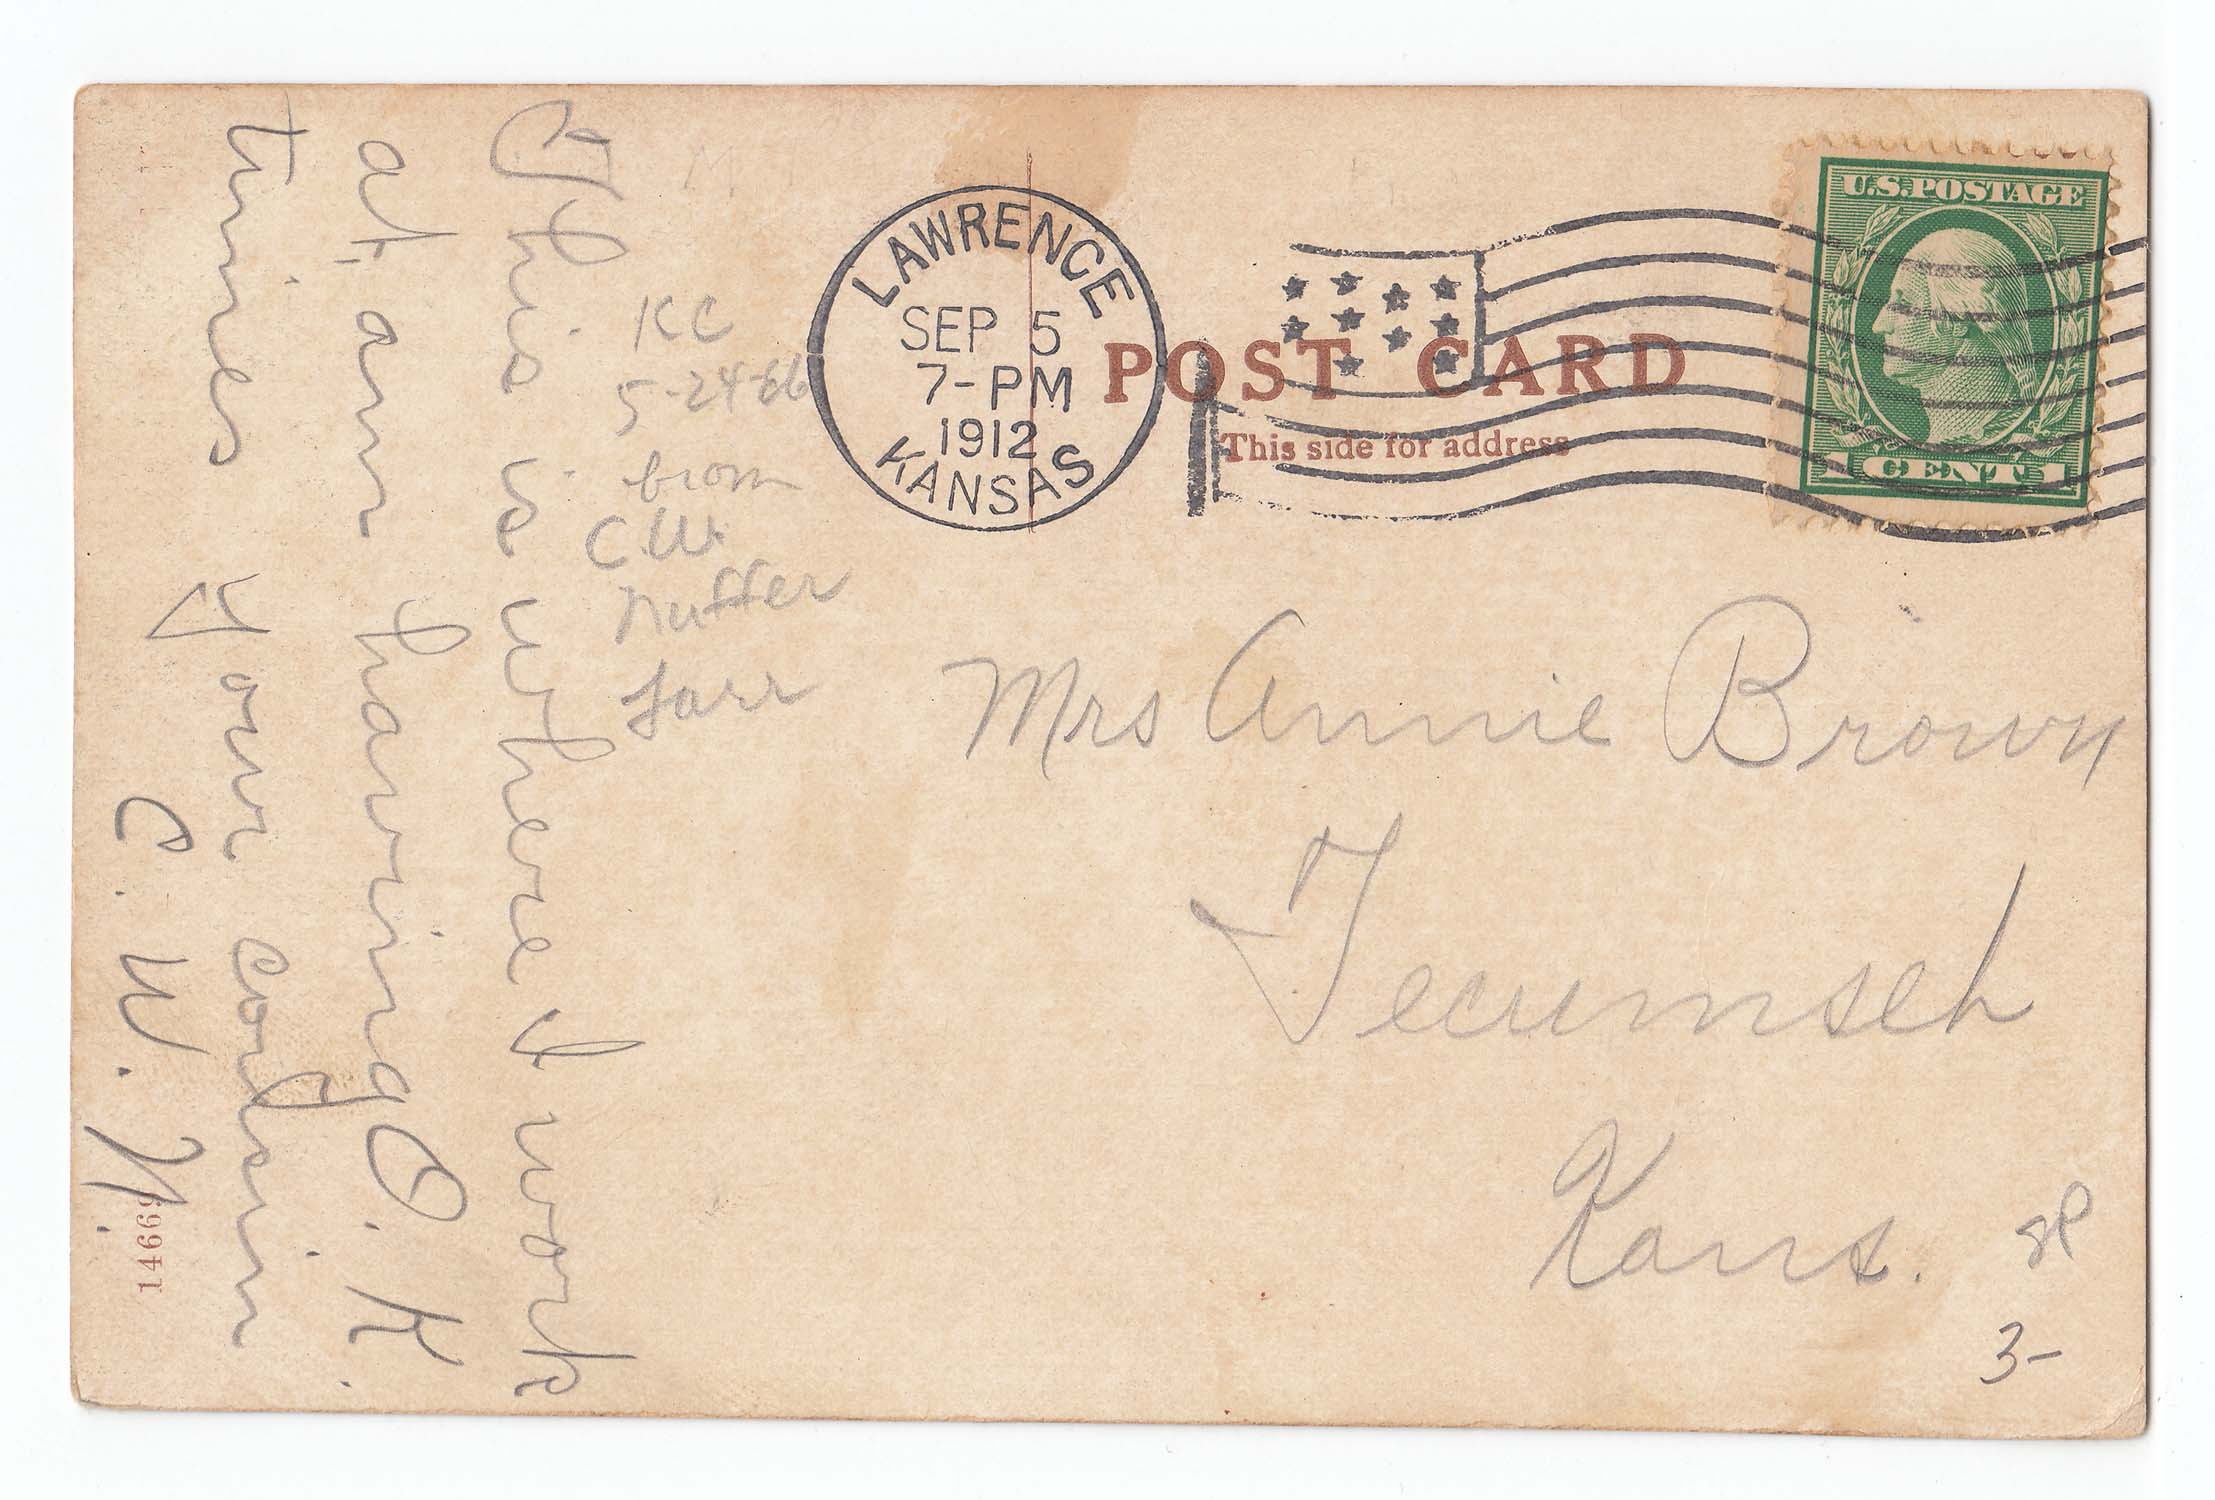 This is where I work
at, am having O. K.
times your cousin
C. W. N.
KC
5-24-66
from
C.W.
Nuffer
Larr
LAWRENCE
SEP 5
7-PM
1912
KANSAS
POST CARD
This side for address
U.S. POSTAGE
1 CENT 1
Mrs Annie Brown
Tecumseh
Kans.
3-
14669